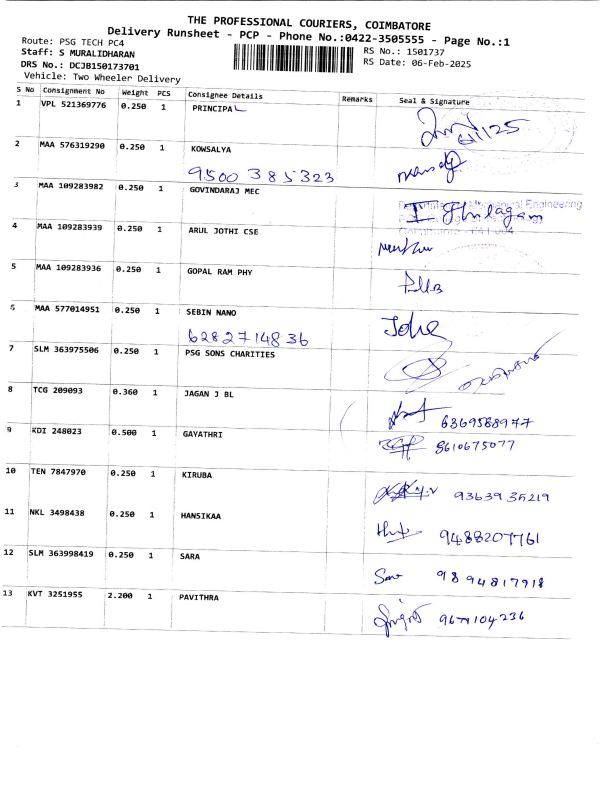 THE PROFESSIONAL COURIERS, COIMBATORE
Delivery Runsheet - PCP - Phone No.:0422-3505555 - Page No.:1
Route: PSG TECH PC4
RS No.: 1501737
Staff: S MURALIDHARAN
RS Date: 06-Feb-2025
DRS No.: DCJB150173701
Vehicle: Two Wheeler Delivery
S No Consignment No Weight PCS Consignee Details Remarks Seal & Signature
1 VPL 521369776 0.250 1 PRINCIPAL
2 MAA 576319290 0.250 1 KOWSALYA
9500 385323
3 MAA 109283982 0.250 1 GOVINDARAJ MEC
4 MAA 109283939 0.250 1 ARUL JOTHI CSE
5 MAA 109283936 0.250 1 GOPAL RAM PHY
6 MAA 577014951 0.250 1 SEBIN NANO
6282714836
7 SLM 363975506 0.250 1 PSG SONS CHARITIES
8 TCG 209093 0.360 1 JAGAN J BL
6369588977
9 KDI 248023 0.500 1 GAYATHRI
8610675077
10 TEN 7847970 0.250 1 KIRUBA
9363935219
11 NKL 3498438 0.250 1 HANSIKAA
9488207761
12 SLM 363998419 0.250 1 SARA
9894817918
13 KVT 3251955 2.200 1 PAVITHRA